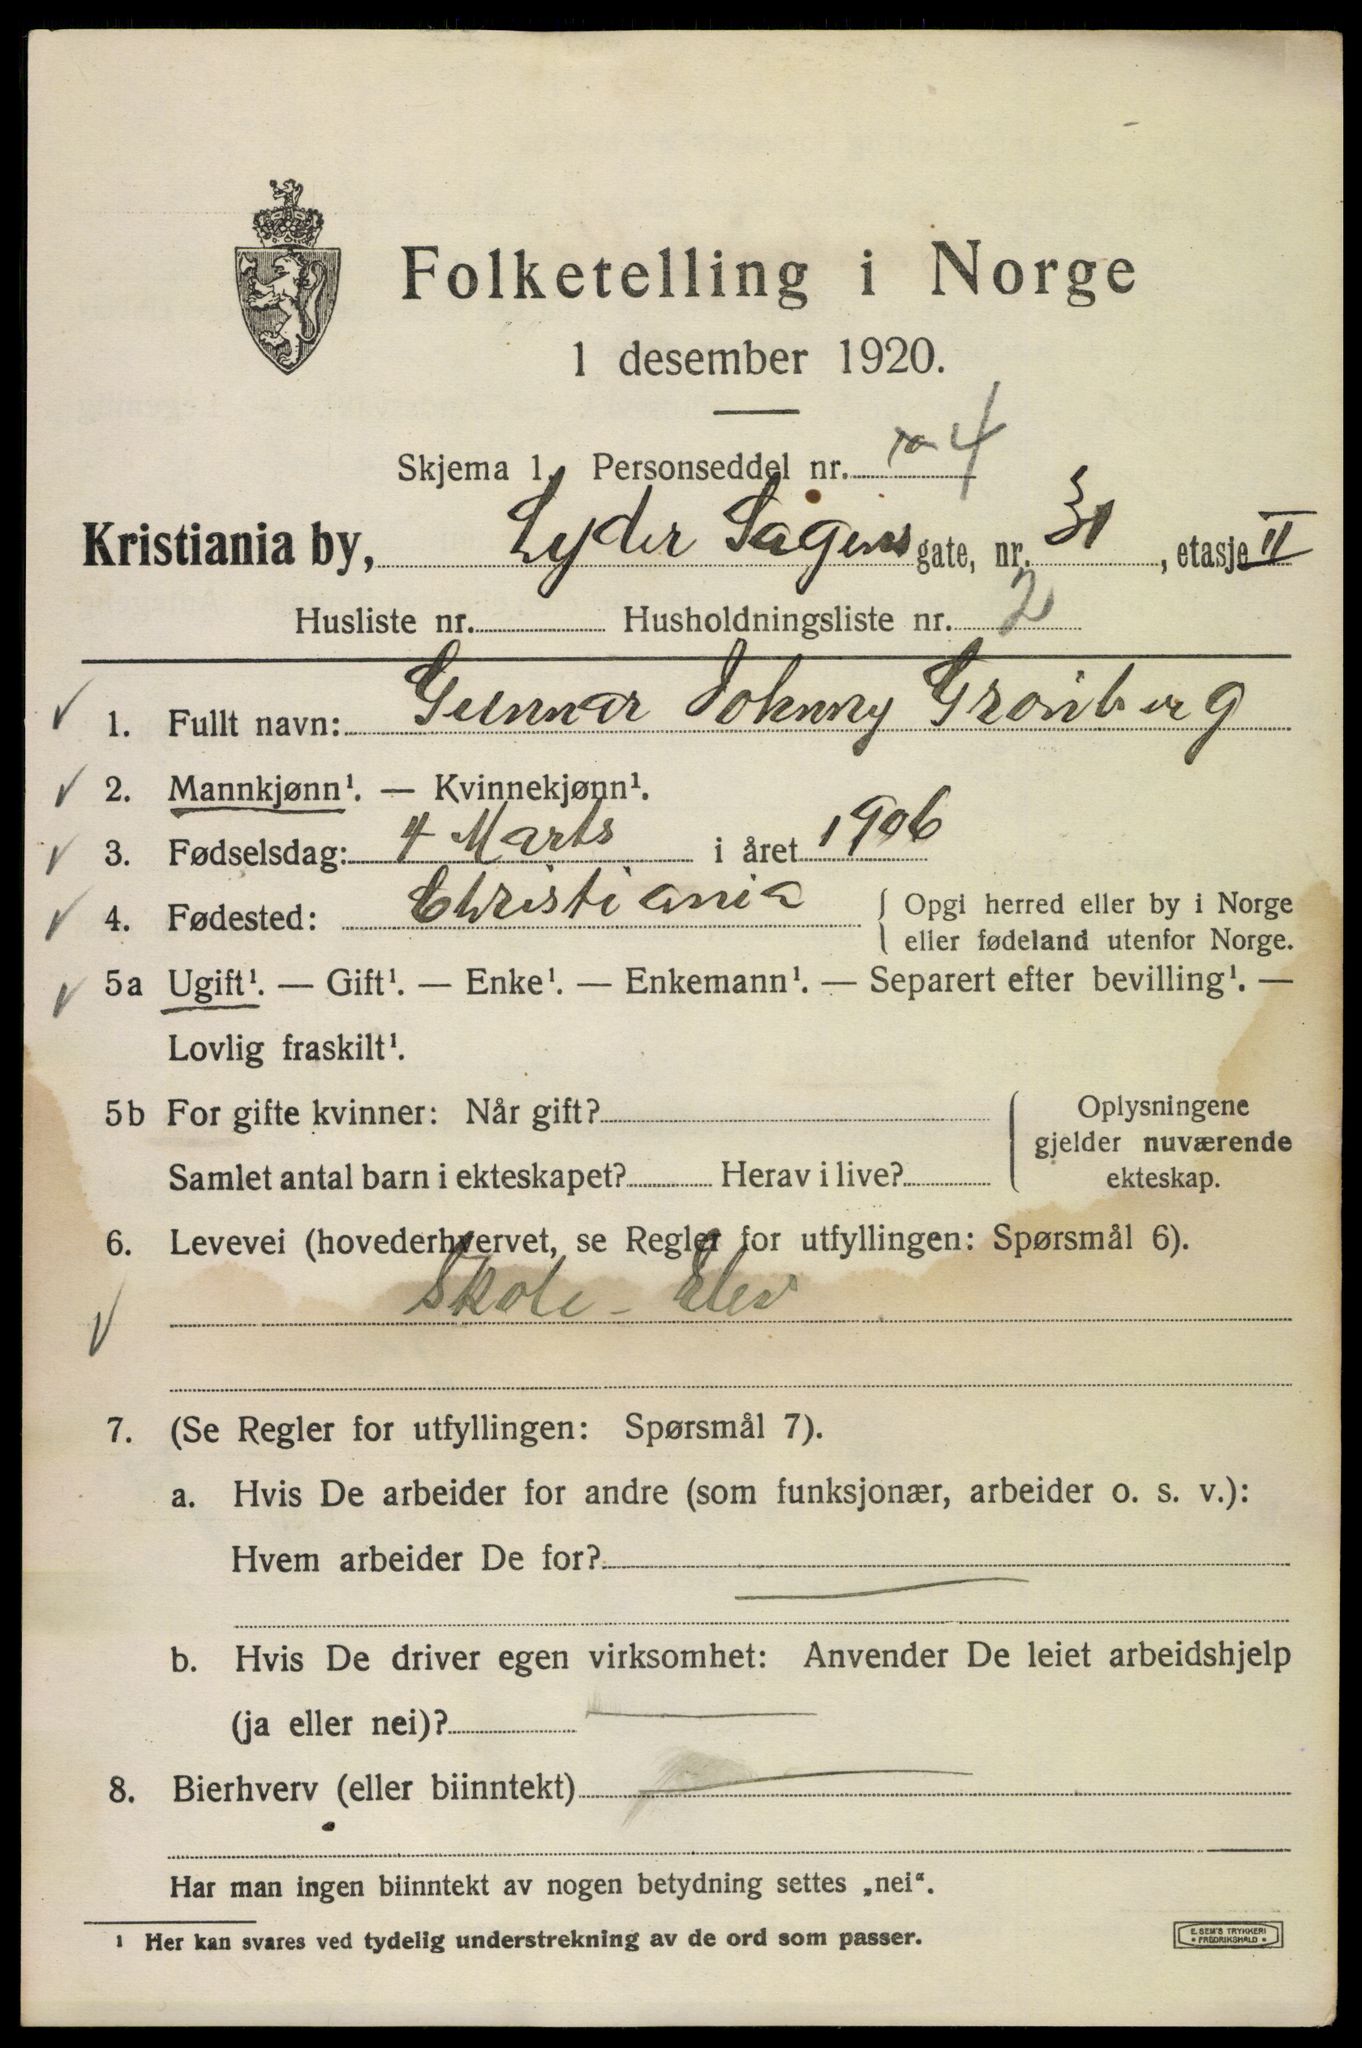 Folketelling i Norge
1 desember 1920.
Skjema 1. Personseddel nr. 4
Kristiania by, Lyder Sagens gate, nr. 31, etasje II
Husliste nr. Husholdningsliste nr. 2
1. Fullt navn: Gunnar Johnny Grønberg
2. Mannkjønn¹. — Kvinnekjønn¹.
3. Fødselsdag: 4 Marts i året 1906
4. Fødested: Christiania { Opgi herred eller by i Norge
eller fødeland utenfor Norge.
5a Ugift¹. — Gift¹. — Enke¹. — Enkemann¹. — Separert efter bevilling¹. —
Lovlig fraskilt¹.
5b For gifte kvinner: Når gift? Oplysningene
gjelder nuværende
Samlet antal barn i ekteskapet? Herav i live? ekteskap.
6. Levevei (hovederhvervet, se Regler for utfyllingen: Spørsmål 6).
Skole - Elev
7. (Se Regler for utfyllingen: Spørsmål 7).
a. Hvis De arbeider for andre (som funksjonær, arbeider o. s. v.):
Hvem arbeider De for?
b. Hvis De driver egen virksomhet: Anvender De leiet arbeidshjelp
(ja eller nei)?
8. Bierhverv (eller biinntekt)
Har man ingen biinntekt av nogen betydning settes „nei“.
¹ Her kan svares ved tydelig understrekning av de ord som passer.
E. SEM'S TRYKKERI
• FREDRIKSHALD •